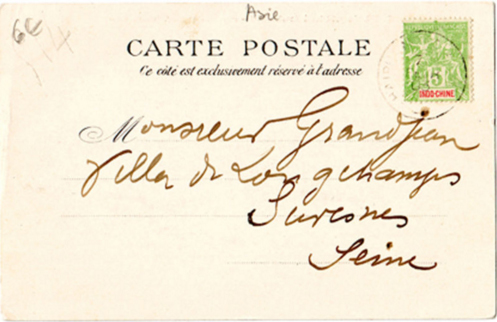 6€
Asie
CARTE POSTALE
Ce côté est exclusivement réservé à l'adresse
5
INDO-CHINE
Monsieur Grandjean
Villa de Longchamps
Suresnes
Seine